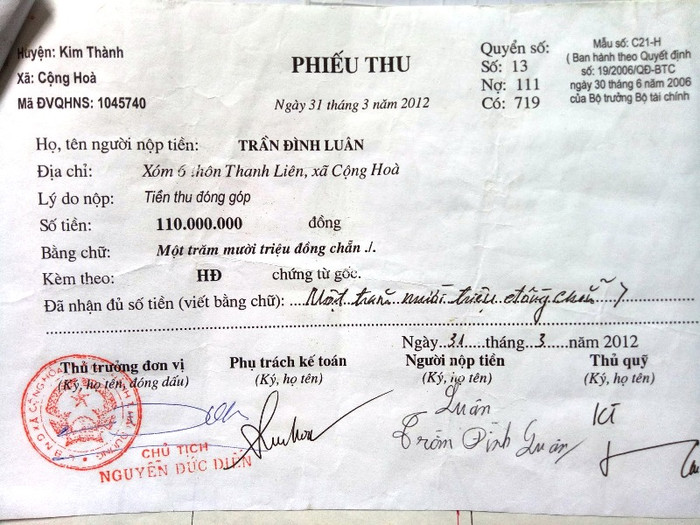 Huyện: Kim Thành
Xã: Cộng Hoà
Mã ĐVQHNS: 1045740
PHIẾU THU
Ngày 31 tháng 3 năm 2012
Quyển số:
Số: 13
Nợ: 111
Có: 719
Mẫu số: C21-H
( Ban hành theo Quyết định
số: 19/2006/QĐ-BTC
ngày 30 tháng 6 năm 2006
của Bộ trưởng Bộ tài chính
Họ, tên người nộp tiền: TRẦN ĐÌNH LUÂN
Địa chỉ: Xóm 6 thôn Thanh Liên, xã Cộng Hoà
Lý do nộp: Tiền thu đóng góp
Số tiền: 110.000.000 đồng
Bằng chữ: Một trăm mười triệu đồng chẵn ./.
Kèm theo: HĐ chứng từ gốc.
Đã nhận đủ số tiền (viết bằng chữ): Một trăm mười triệu đồng chẵn
Ngày 31 tháng 3 năm 2012
Thủ trưởng đơn vị Phụ trách kế toán Người nộp tiền Thủ quỹ
(Ký, họ tên, đóng dấu) (Ký, họ tên) (Ký, họ tên) (Ký, họ tên)
Luân
Trần Đình Luân
CHỦ TỊCH
NGUYỄN ĐỨC DIỆN